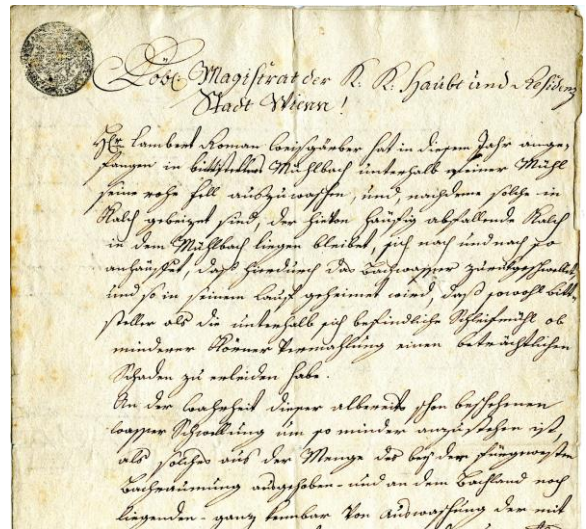 Löbl: Magistrat der K: K: Haubt und Residenz
Stadt Wienn!
Hr: Lambert Roman Weisgärber hat in diesem Jahr ange-
fangen in bittstellers Mühlbach unterhalb meiner Mühl
seine rohe Fell auszuwaschen, und, nachdeme solche in
Kalch gebeizet sind, der hievon häufig abfallende Kalch
in dem Mühlbach liegen bleibet, sich nach und nach so
anhäuffet, daß hierdurch das Bachwasser zurükgeschwellet
und so in seinem Lauf gehemmet wird, daß sowohl Bitt-
steller als die unterhalb sich befindliche Schleifmühl ob
minderer Körner Vermahlung einen beträchtlichen
Schaden zu erleiden habe.
An der Wahrheit dieser albereits schon beschehenen
Wasser Schwellung um so minder anzustehen ist,
als solches aus der Menge des bey der
Bachraumung ausgehoben- und an dem Bachland noch
liegenden- ganz kennbar von Auswaschung der mit